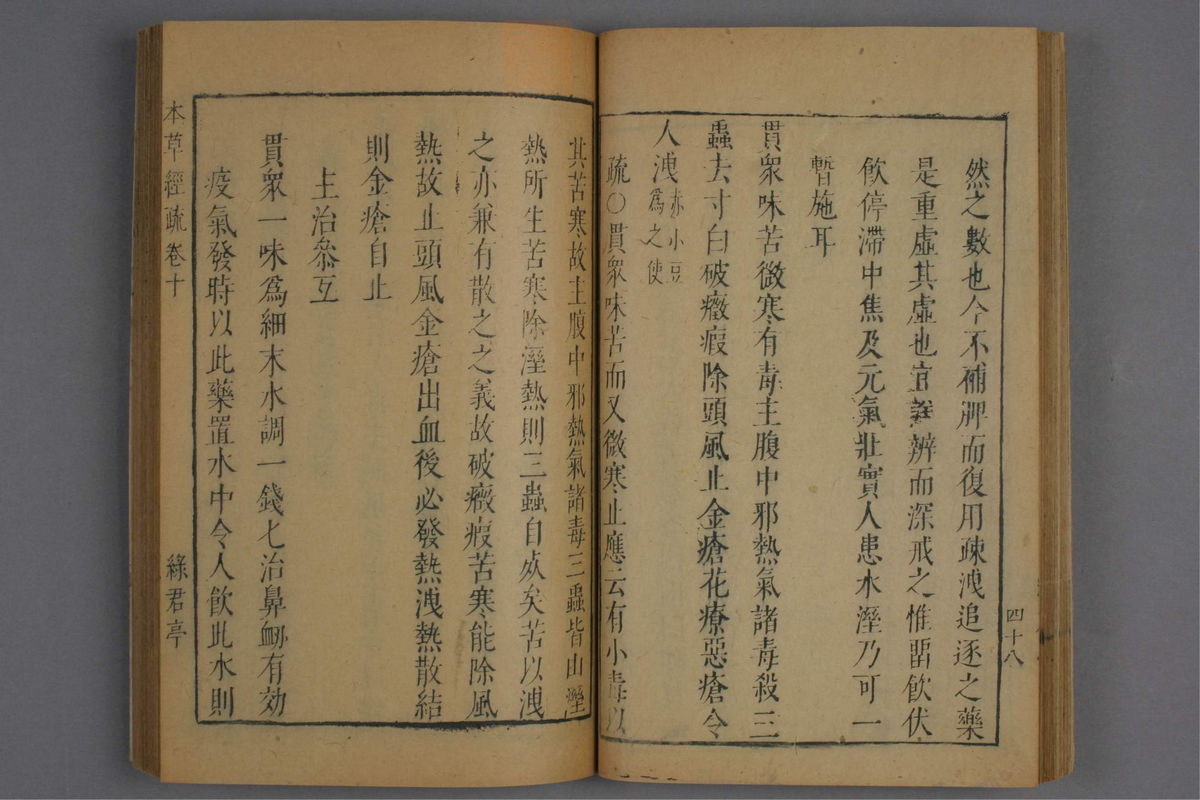 然之數也今不補脾而復用疎洩追逐之藥
是重虛其虛也宜詳辨而深戒之惟畱飲伏
飲停滯中焦及元氣壯實人患水溼乃可一
暫施耳
貫衆味苦微寒有毒主腹中邪熱氣諸毒殺三
蟲去寸白破癥瘕除頭風止金瘡花療惡瘡令
人洩赤小豆
爲之使
疏○貫衆味苦而又微寒止應云有小毒以
四十八
其苦寒故主腹中邪熱氣諸毒三蟲皆由溼
熱所生苦寒除溼熱則三蟲自死矣苦以洩
之亦兼有散之之義故破癥瘕苦寒能除風
熱故止頭風金瘡出血後必發熱洩熱散結
則金瘡自止
主治叅互
貫衆一味爲細末水調一錢匕治鼻衂有効
疫氣發時以此藥置水中令人飲此水則
本草經疏卷十
綠君亭